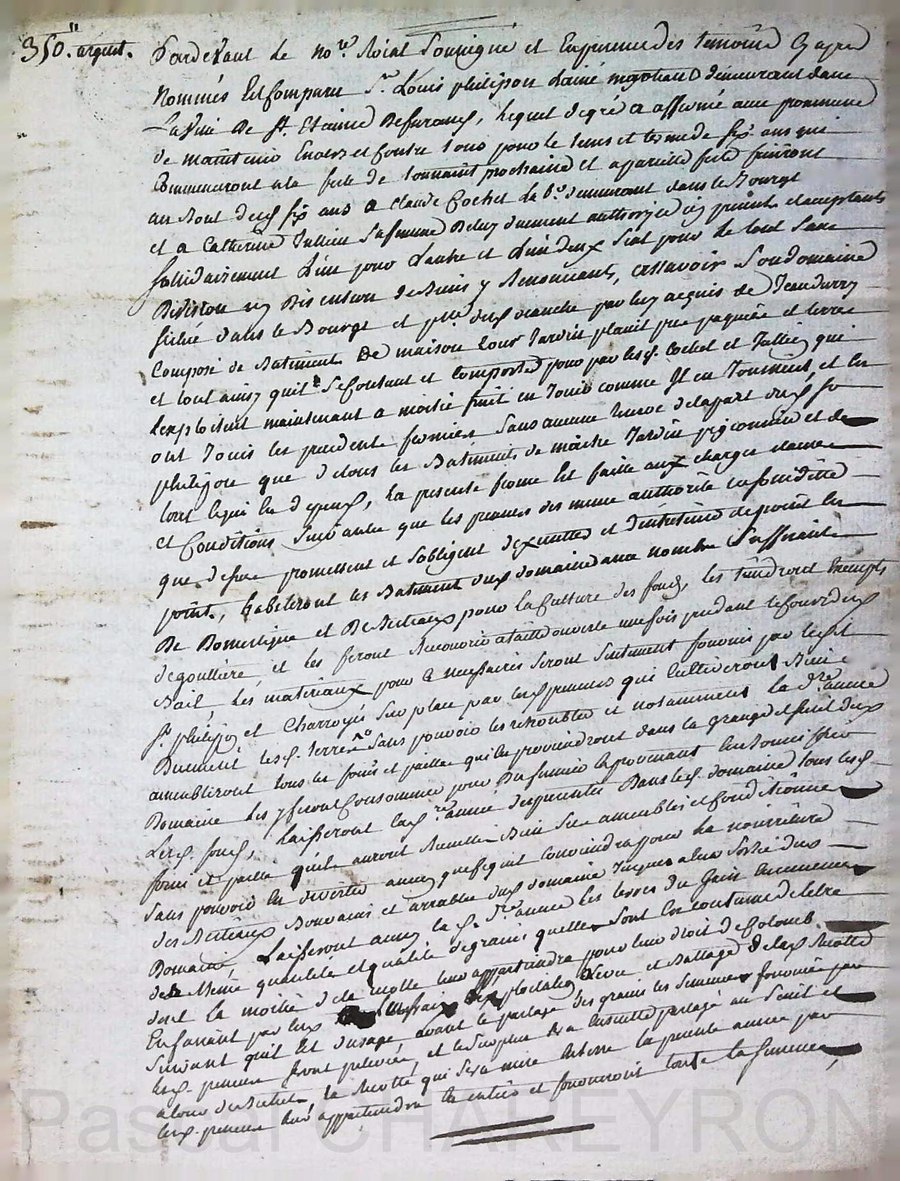 350.tt argent. Pardevant le no.re Roial Soussigné et En presence des temoins Cy apres
Nommés Est Comparu S.r Louis philipon L'ainé marchand demeurant dans
La ville De S.t Etienne De furans, lequel degré a affermé avec promesse
de maintenir Envers et Contre tous pour le tems et terme de six ans qui
Commenceront a la fete de toussaint prochaine et a pareille fete finiront
au bout desd. six ans a Claude Cochet Lab.r demeurant dans le Bourg
et a Catherine Jullien Sa femme De luy dument authorisée icy presents et acceptants
Sollidairement L'un pour L'autre et L'un d'eux Seul pour le tout Sans
Division ny Discussion de Biens y Renoncants, assavoir Son domaine
Situé dans le Bourg et par luy acquis de Jean
Composé de Batiment De maison Cour Jardin pred paquier et terres
et tout ainsy qu'il Se Contient et Comporte pour par lesd. Cochet et Jullien qui
L'exploitent maintenant a moitié fruit en Jouir comme Il en Jouissent, et en
ont Joui les precedents fermiers Sans aucune reserve de la part dud. S.r
philipon que de tous les Batiments de Jardin et de
tout ce qui en depend, La presente ferme Est faitte aux charges clauses
et Conditions Suivantes que les preneurs des meme authorité et Sollidité
que dessus promettent et S'obligent d'executer et d'entretenir de point en
point, habiteront les Batiments dud. domaine avec nombre Suffisant
De Domestique et De Bestiaux pour la Culture des fonds, les tiendront Exempts
de gouttiere, et les feront Recouvrir a taille ouverte une fois pendant le Cours dud.
Bail, Les materiaux pour ce necessaires Seront Seulement fournis par ledit
S.r philipon et Charroyés Sur place par lesd. preneurs qui Cultiveront Bien
Duement lesd. terres Sans pouvoir les retroubler et notamment la d.re année
ameubliront tous les foins et paille qui en proviendront dans la grange et fenil dud.
Domaine Les y feront Consommer pour Du fumier en provenant
Lesd. fonds, Laisseront lad. d.re année Dans led. domaine tous les
foins et paille qu'ils auront Recueillis Bien Sec ameublés et Conditionnés
Sans pouvoir en divertir aucun quoique Conviendra pour La nourriture
des Bestiaux Bouvains et arrables dud. domaine Jusques a leur Sortie dud.
Domaine Laisseront aussy la d. d.re année Les terres
de Meme quantité et qualité de grains, quelles Sont En Coutume de letre
dont la moitié de la recolte leur appartiendra pour leur droit de Colomb.
En faisant par eux Levée et Battage de lad. Recolte
Suivant quil Est d'usage, avant le partage des grains les Semences fournies par
lesd. preneurs Seront prelevées, et le Surplus Sera Ensuitte partagé au
La Recolte qui Sera mise En la presente année par
lesd. preneurs leur appartiendra En entier et fourniront toute la Semence,
Pascal CHAREYRON